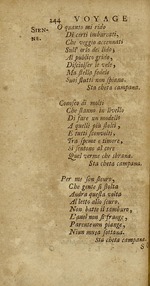 244 VOYAGE
SIEN-
NE.
O quanto mi rido
Di certi imbarcati,
Che veggio accennati
Sull' orlo del lido;
Al publico grido,
Discioglier le vele,
Ma stella fedele
Suoi flatti non spiana.
Sta cheta campana.
Conosco di molti
Che stanno
Di fare un modello
A quelli più stolti,
E tutti sconvolti,
Tra speme e timore,
Si sentono al core
Quel verme che sbrana.
Sta cheta campana.
Per me son sicuro,
Che gente sì stolta
Andrà questa volta
Al letto allo scuro.
Non batte il tamburo,
L'anel non si frange,
Parenturin piange,
Niun muta sottana.
Sta cheta campana.
S